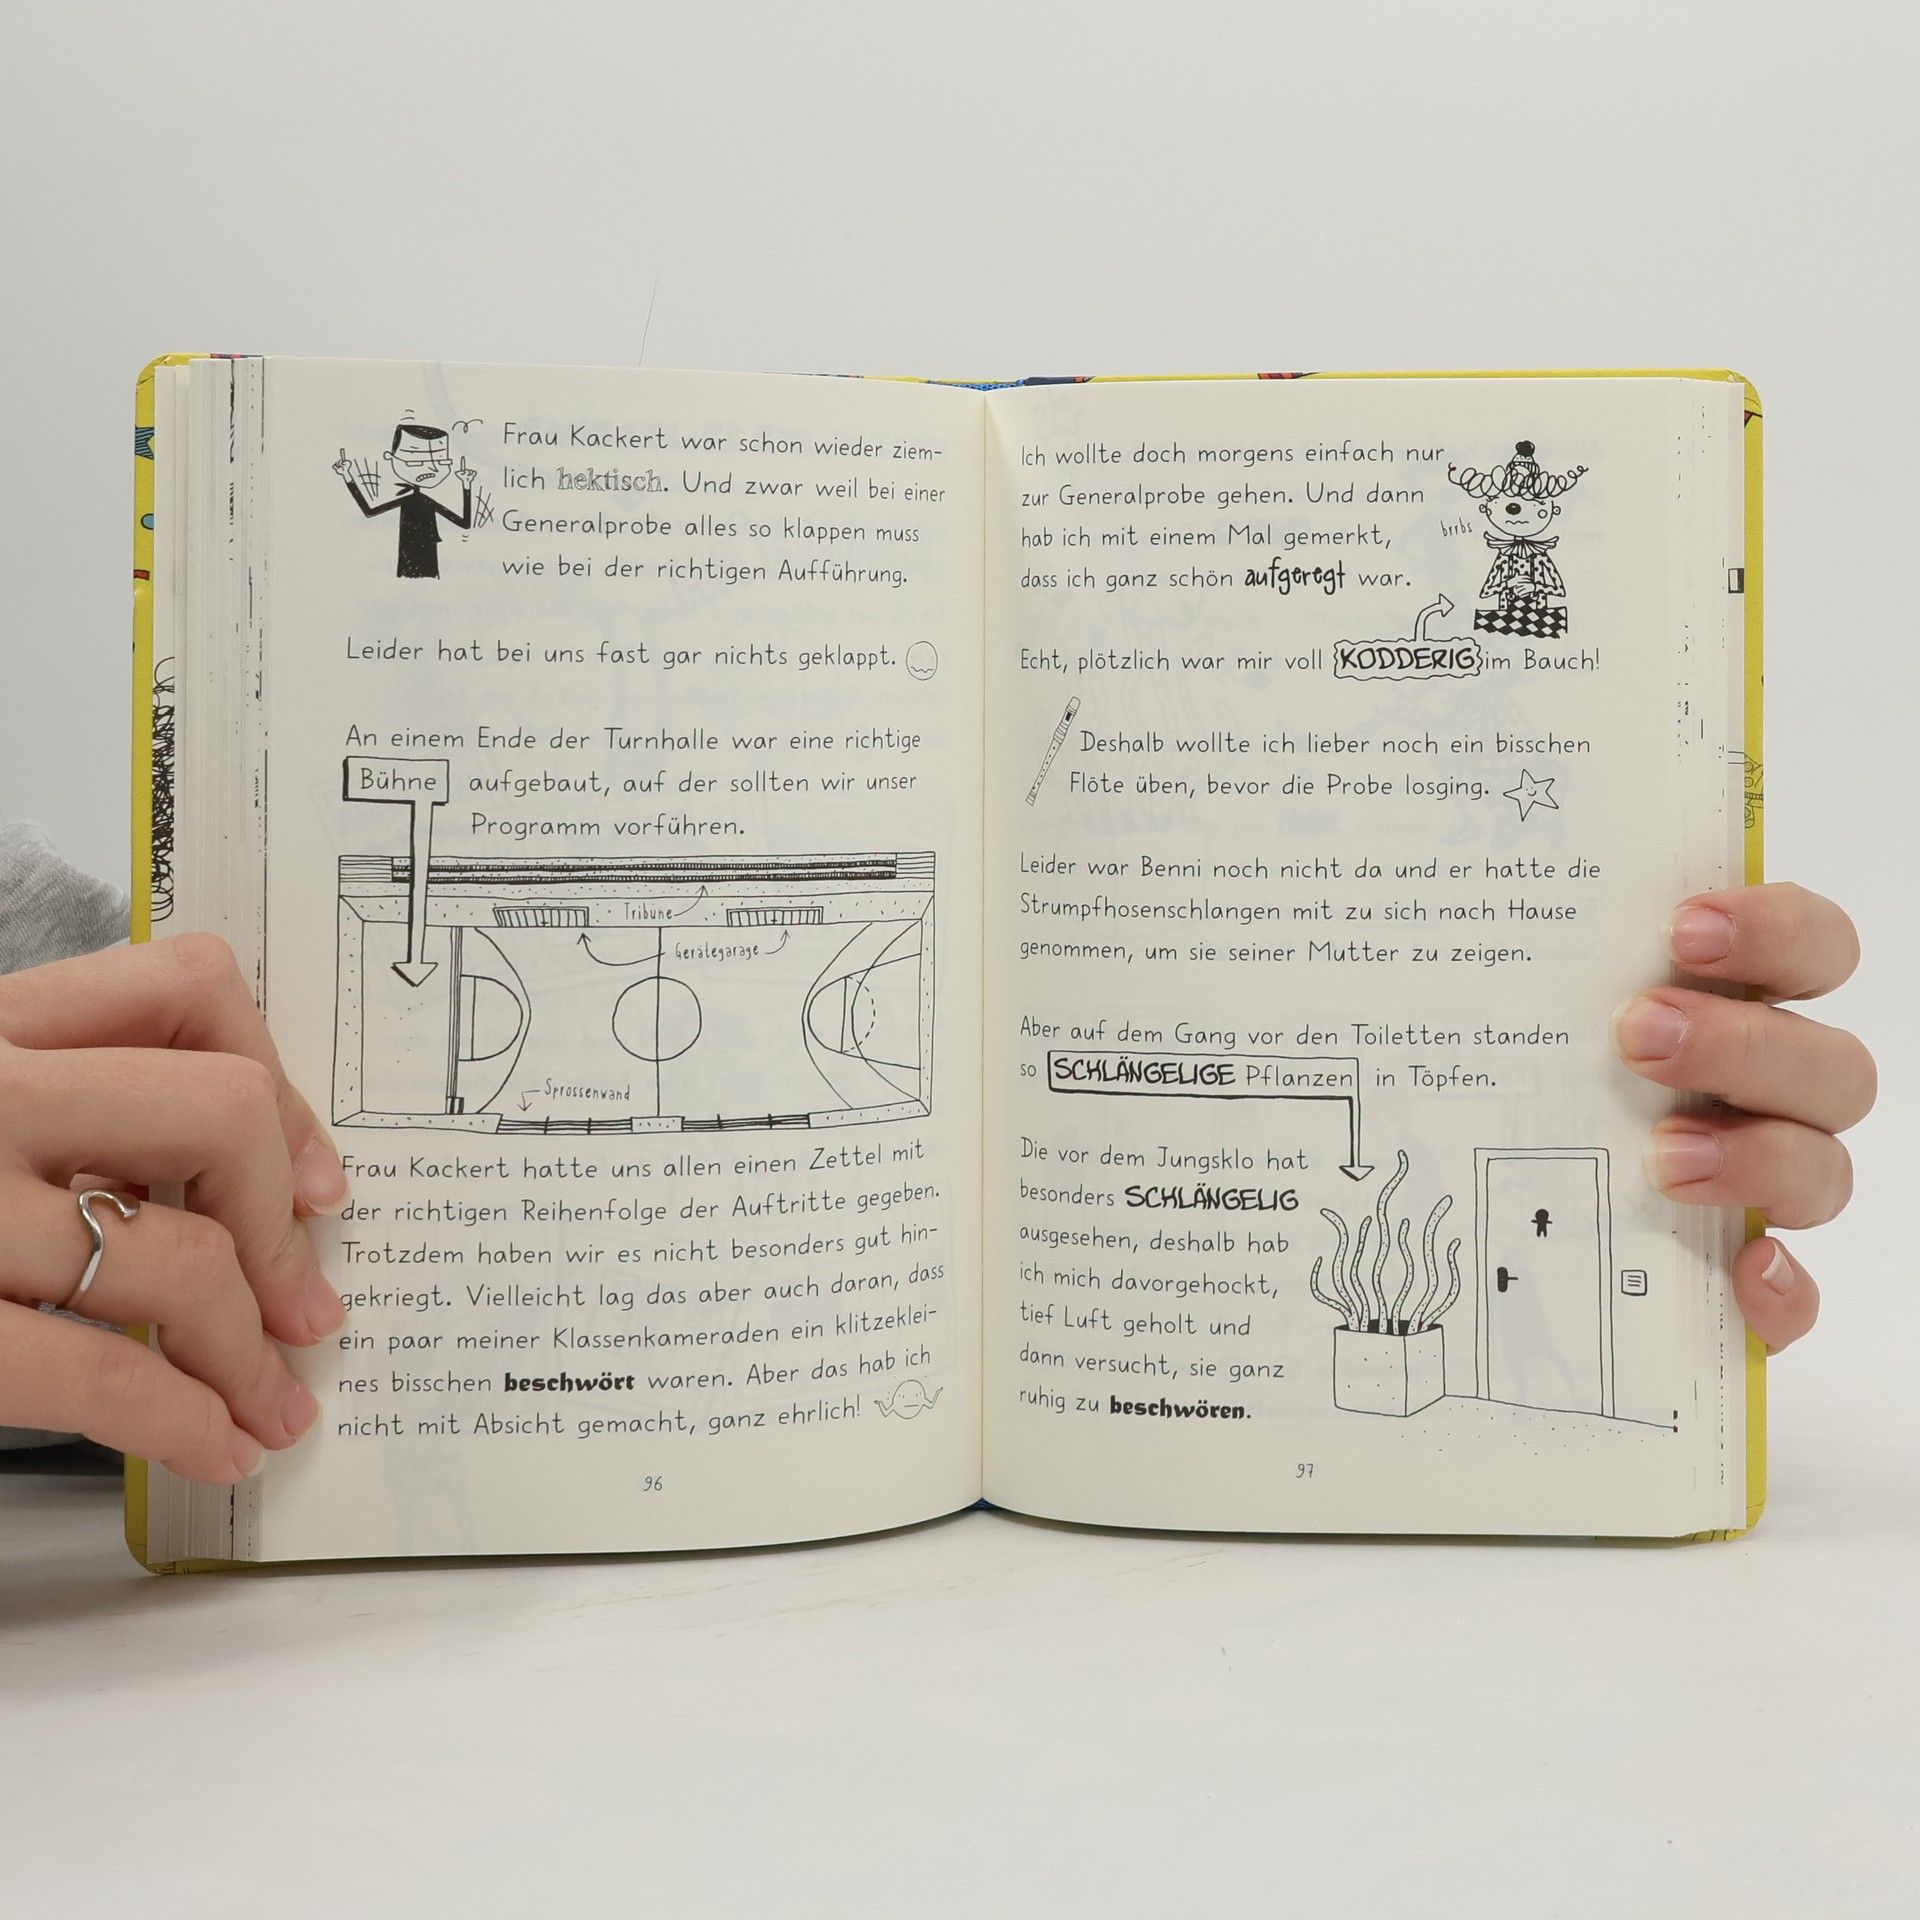 Frau Kackert war schon wieder ziem-
lich hektisch. Und zwar weil bei einer
Generalprobe alles so klappen muss
wie bei der richtigen Aufführung.
Leider hat bei uns fast gar nichts geklappt.
An einem Ende der Turnhalle war eine richtige
Bühne aufgebaut, auf der sollten wir unser
Programm vorführen.
Tribüne
Gerätegarage
Sprossenwand
Frau Kackert hatte uns allen einen Zettel mit
der richtigen Reihenfolge der Auftritte gegeben.
Trotzdem haben wir es nicht besonders gut hin-
gekriegt. Vielleicht lag das aber auch daran, dass
ein paar meiner Klassenkameraden ein klitzeklei-
nes bisschen beschwört waren. Aber das hab ich
nicht mit Absicht gemacht, ganz ehrlich!
96
Ich wollte doch morgens einfach nur
zur Generalprobe gehen. Und dann
hab ich mit einem Mal gemerkt,
dass ich ganz schön aufgeregt war.
brrbs
Echt, plötzlich war mir voll KODDERIG im Bauch!
Deshalb wollte ich lieber noch ein bisschen
Flöte üben, bevor die Probe losging.
Leider war Benni noch nicht da und er hatte die
Strumpfhosenschlangen mit zu sich nach Hause
genommen, um sie seiner Mutter zu zeigen.
Aber auf dem Gang vor den Toiletten standen
so SCHLÄNGELIGE Pflanzen in Töpfen.
Die vor dem Jungsklo hat
besonders SCHLÄNGELIG
ausgesehen, deshalb hab
ich mich davorgehockt,
tief Luft geholt und
dann versucht, sie ganz
ruhig zu beschwören.
97